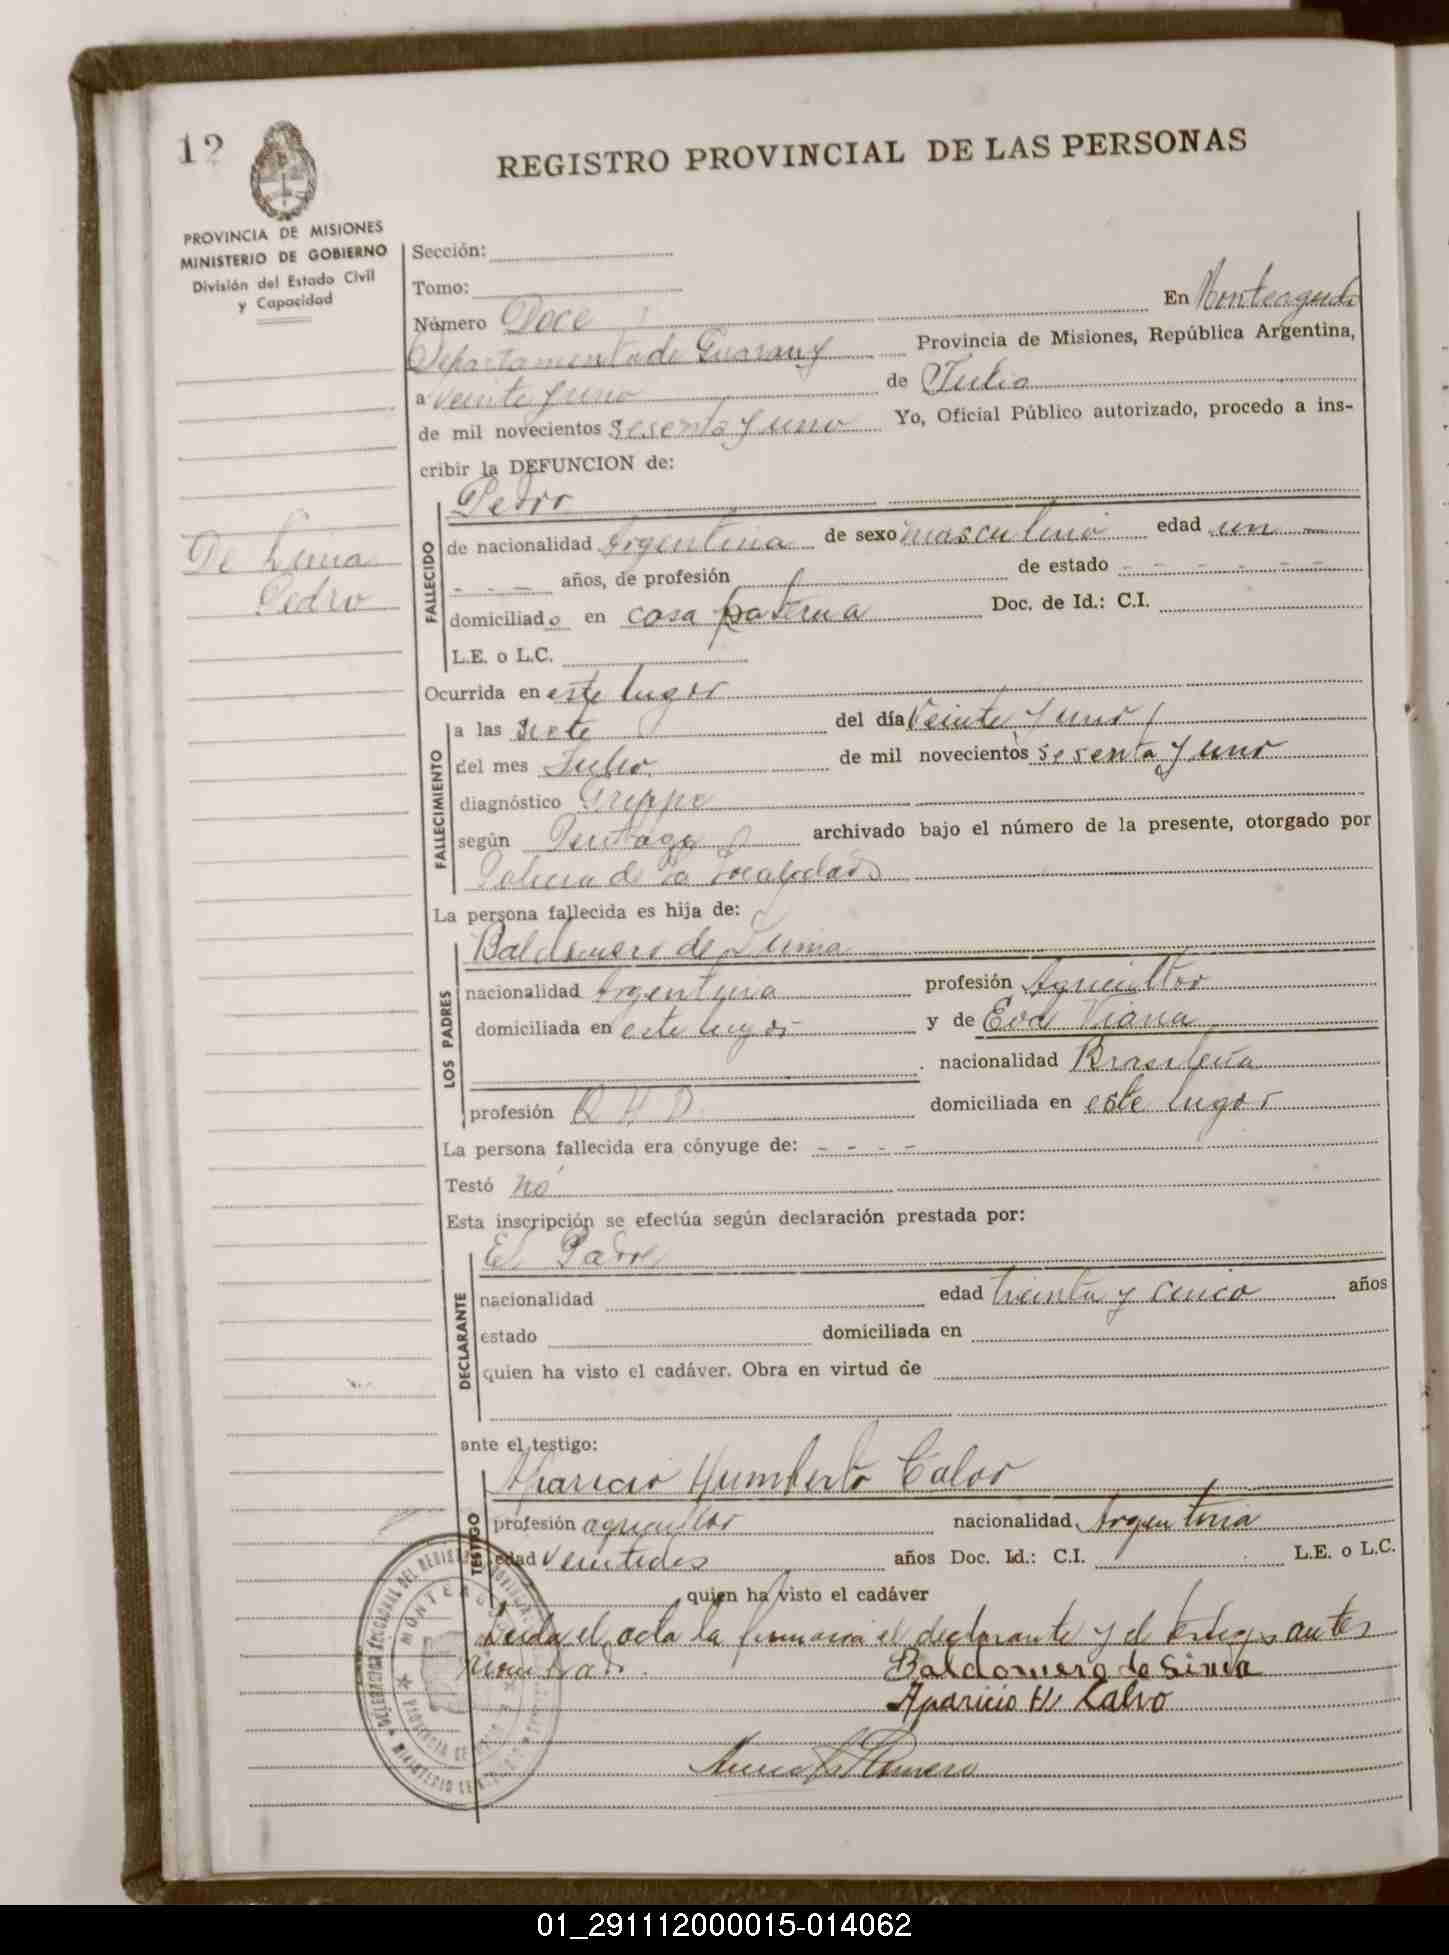 12
REGISTRO PROVINCIAL DE LAS PERSONAS
PROVINCIA DE MISIONES
MINISTERIO DE GOBIERNO
División del Estado Civil
y Capacidad
Sección:
Tomo:
Número Doce En Monteagudo
Departamento de Guarany Provincia de Misiones, República Argentina,
a veinte y uno de Julio
de mil novecientos sesenta y uno Yo, Oficial Público autorizado, procedo a ins-
cribir la DEFUNCION de:
De Lima
Pedro
FALLECIDO
Pedro
de nacionalidad Argentina de sexo masculino edad un
- - - años, de profesión de estado - - - - - -
domiciliado en casa paterna Doc. de Id.: C.I.
L.E. o L.C.
Ocurrida en este lugar
FALLECIMIENTO
a las siete del día Veinte y uno
del mes Julio de mil novecientos sesenta y uno
diagnóstico Grippe
según archivado bajo el número de la presente, otorgado por
Policia de la localidad
La persona fallecida es hija de:
LOS PADRES
Baldomero de Lima
nacionalidad Argentina profesión Agricultor
domiciliada en este lugar y de Eva Viana
nacionalidad Brasileña
profesión Q.H.D. domiciliada en este lugar
La persona fallecida era cónyuge de: - - - -
Testó no
Esta inscripción se efectúa según declaración prestada por:
DECLARANTE
El Padre
nacionalidad edad treinta y cinco años
estado domiciliada en
quien ha visto el cadáver. Obra en virtud de
ante el testigo:
TESTIGO
Aparicio Humberto Calvo
profesión agricultor nacionalidad Argentina
edad veintedos años Doc. Id.: C.I. L.E. o L.C.
quien ha visto el cadáver
Leida el acta la firmaron el declarante y el testigo antes
nombrado.
Baldomero de Lima
Aparicio H. Calvo
Romero
01_291112000015-014062